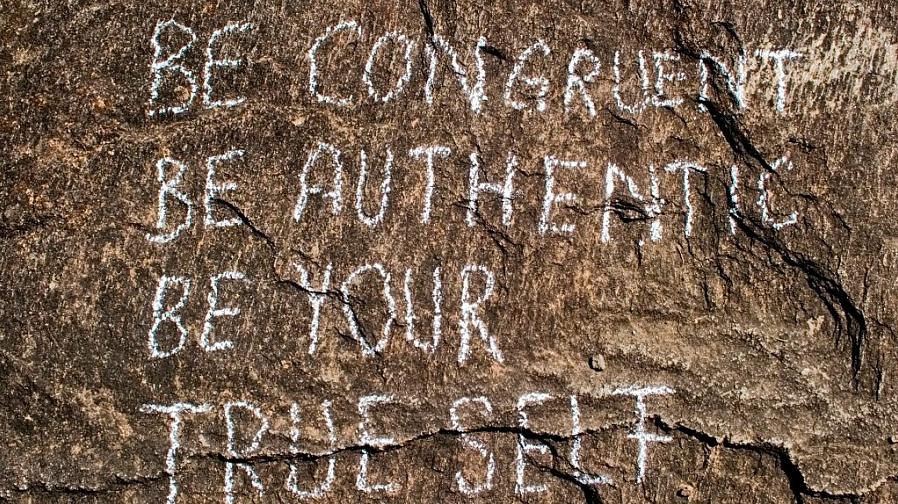 BE CONGRUENT
BE AUTHENTIC
BE YOUR
TRUE SELF